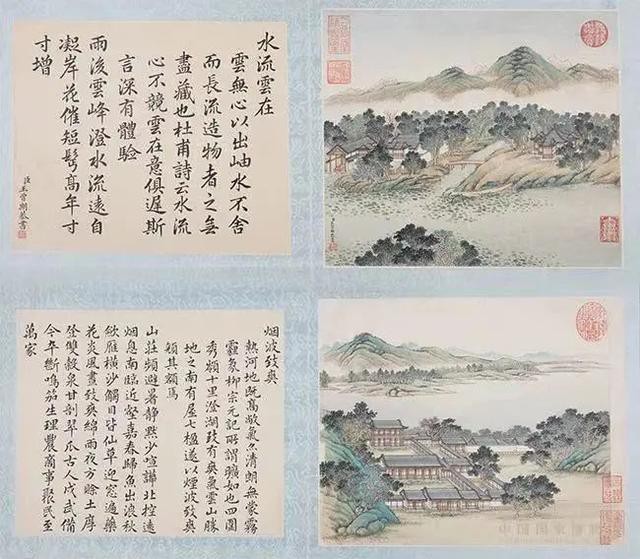 水流雲在
雲無心以出岫水不舍
而長流造物者之無
盡藏也杜甫詩云水流
心不競雲在意俱遲斯
言深有體驗
雨後雲峰澄水流遠自
凝岸花催短鬢高年寸
寸增
臣王曾期恭書
烟波致爽
熱河地既高敞氣亦清朗無蒙霧
霾氛柳宗元記所謂曠如也四圍
秀嶺十里澄湖致有爽氣雲山勝
地之南有屋七楹遂以烟波致爽
顏其額焉
山莊頻避暑靜默少喧譁北控遠
烟息南臨近壑嘉春歸魚出浪秋
斂雁橫沙觸目皆仙草迎窓遍藥
花炎風晝致爽綿雨夜方賒土厚
登雙穀泉甘剖翠瓜古人戍武備
今卒斷鳴笳生理農商事聚民至
萬家
中国国家博物館